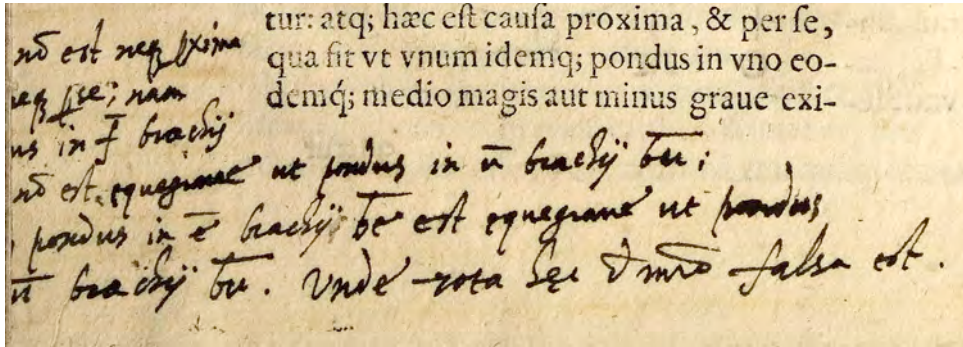 tur: atq; hæc eſt cauſa proxima, & per ſe,
qua fit vt vnum idemq; pondus in vno eo-
demq́; medio magis aut minus graue exi-
nō est neq; ꝓxima
neq; ꝑ se; nam
us in f̄ brachij
nō est equegraue ut pondus in ū brachij b̄u;
pondus in ē brachij b̄e est equegraue ut pondus
ū brachij b̄u. Vnde tota hęc falsa est.